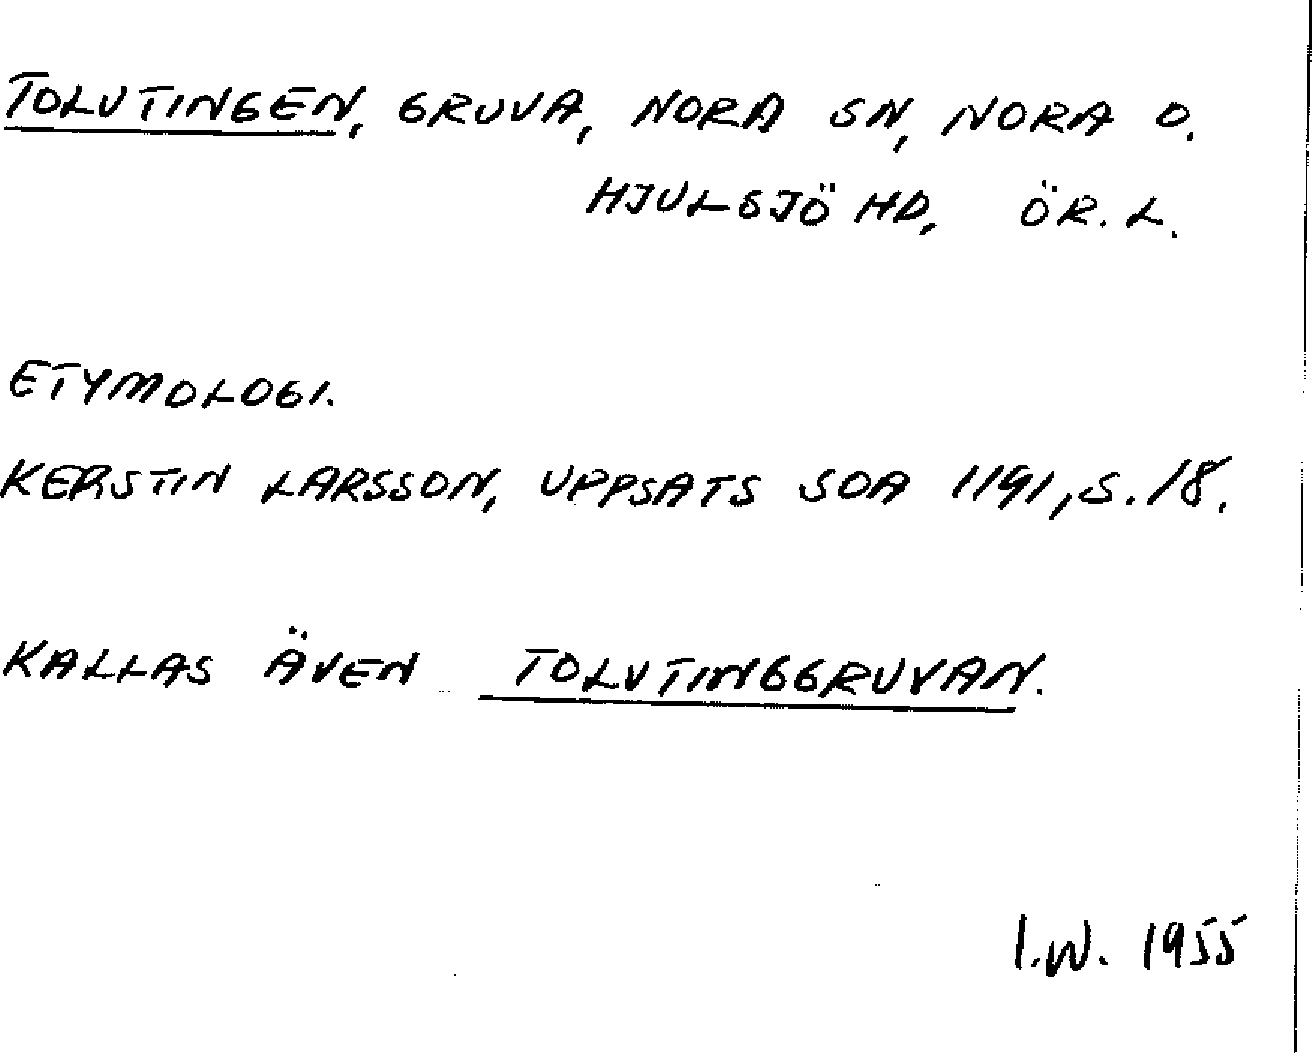 TOLVTINGEN, GRUVA, NORA SN, NORA O.
HJULSJÖ HD, ÖR. L.
ETYMOLOGI.
KERSTIN LARSSON, UPPSATS SOA 1191, S. 18.
KALLAS ÄVEN TOLVTINGGRUVAN.
I.W. 1955